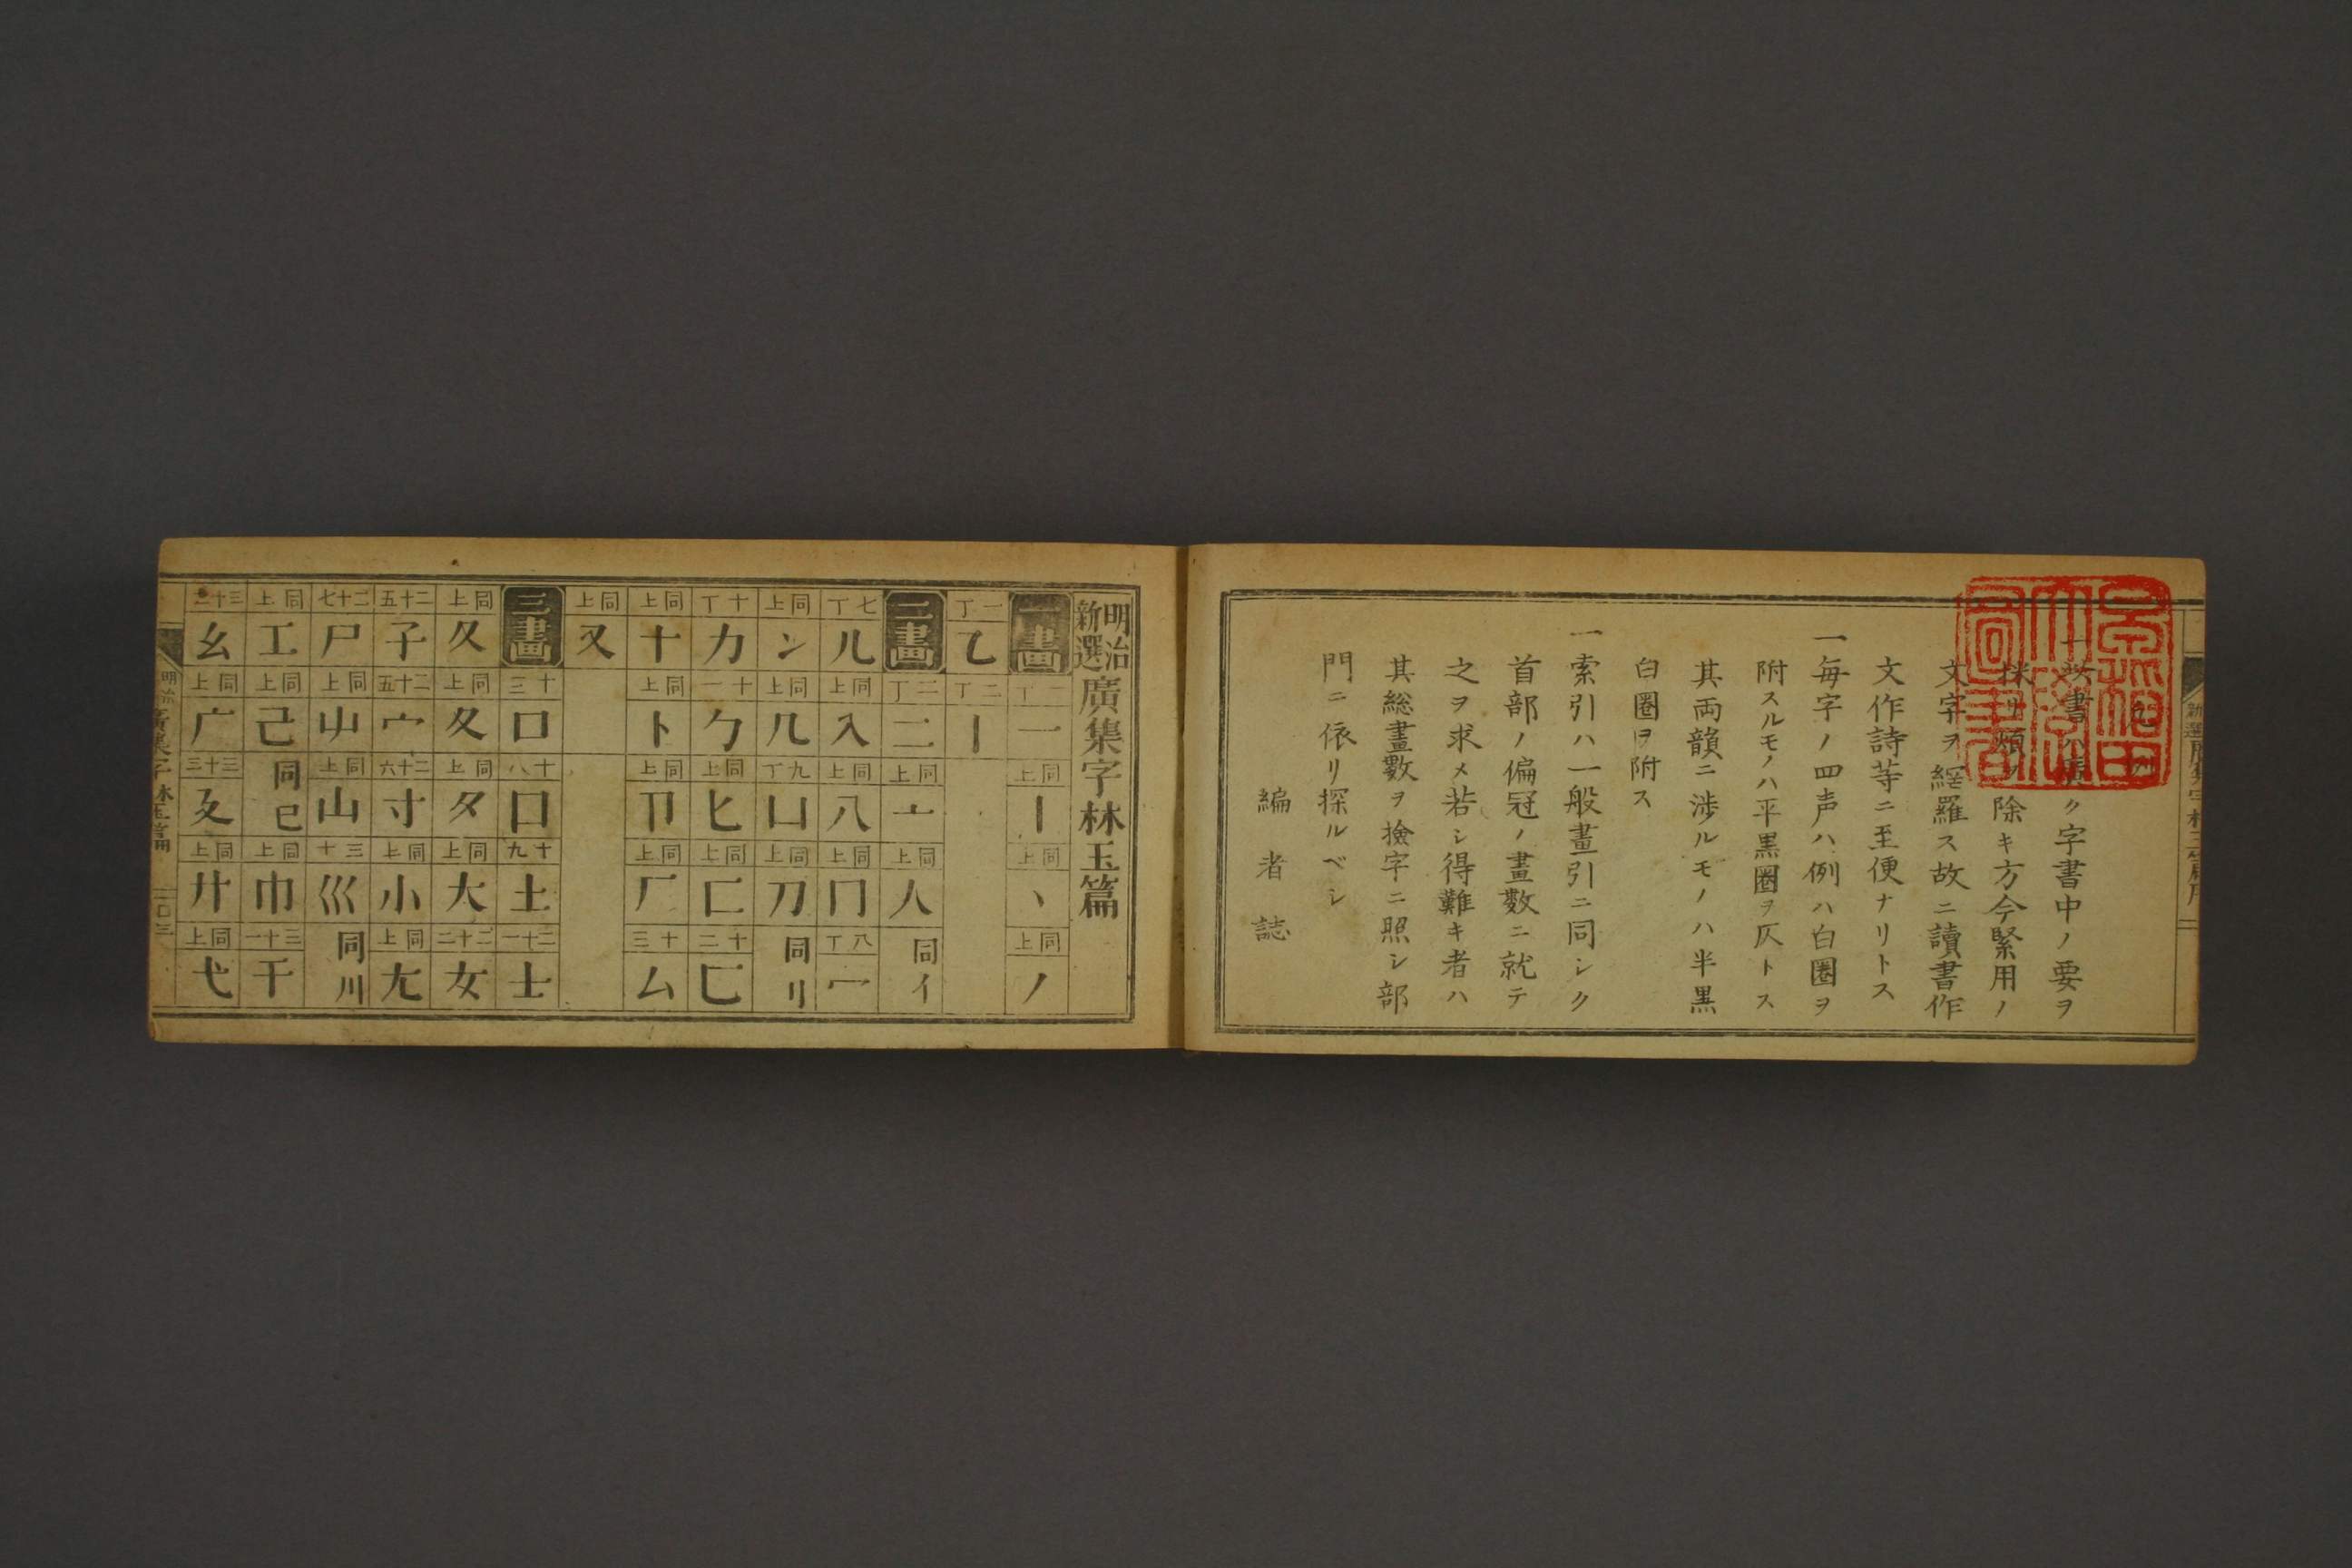 一此書ハ廣ク字書中ノ要ヲ
採リ煩ヲ除キ方今緊用ノ
文字ヲ網羅ス故ニ讀書作
文作詩等ニ至便ナリトス
一毎字ノ四声ハ例ハ白圏ヲ
附スルモノハ平黒圏ヲ仄トス
其両韻ニ渉ルモノハ半黒
白圏ヲ附ス
一索引ハ一般畫引ニ同シク
首部ノ偏冠ノ畫數ニ就テ
之ヲ求メ若シ得難キ者ハ
其総畫數ヲ撿字ニ照シ部
門ニ依リ探ルベシ
編者誌
明治新選廣集字林玉篇
一畫 一丁 一 同上 丨 同上 丶 同上 丿
一丁 乙 二丁 亅
二畫 二丁 二 同上 亠 同上 人 同イ
七丁 儿 同上 入 同上 八 同上 冂 八丁 冖
同上 冫 同上 几 九丁 凵 同上 刀 同刂
十丁 力 十一 勹 同上 匕 同上 匚 十二 匸
同上 十 同上 卜 同上 卩 同上 厂 十三 厶
同上 又
三畫 十三 口 十八 囗 十九 土 二十一 士
同上 夂 同上 夊 同上 夕 同上 大 二十二 女
二十五 子 二十五 宀 二十六 寸 同上 小 同上 尢
二十七 尸 同上 屮 同上 山 三十 巛 同川
同上 工 同上 己 同已 同上 巾 三十一 干
三十二 幺 同上 广 三十三 廴 同上 廾 同上 弋